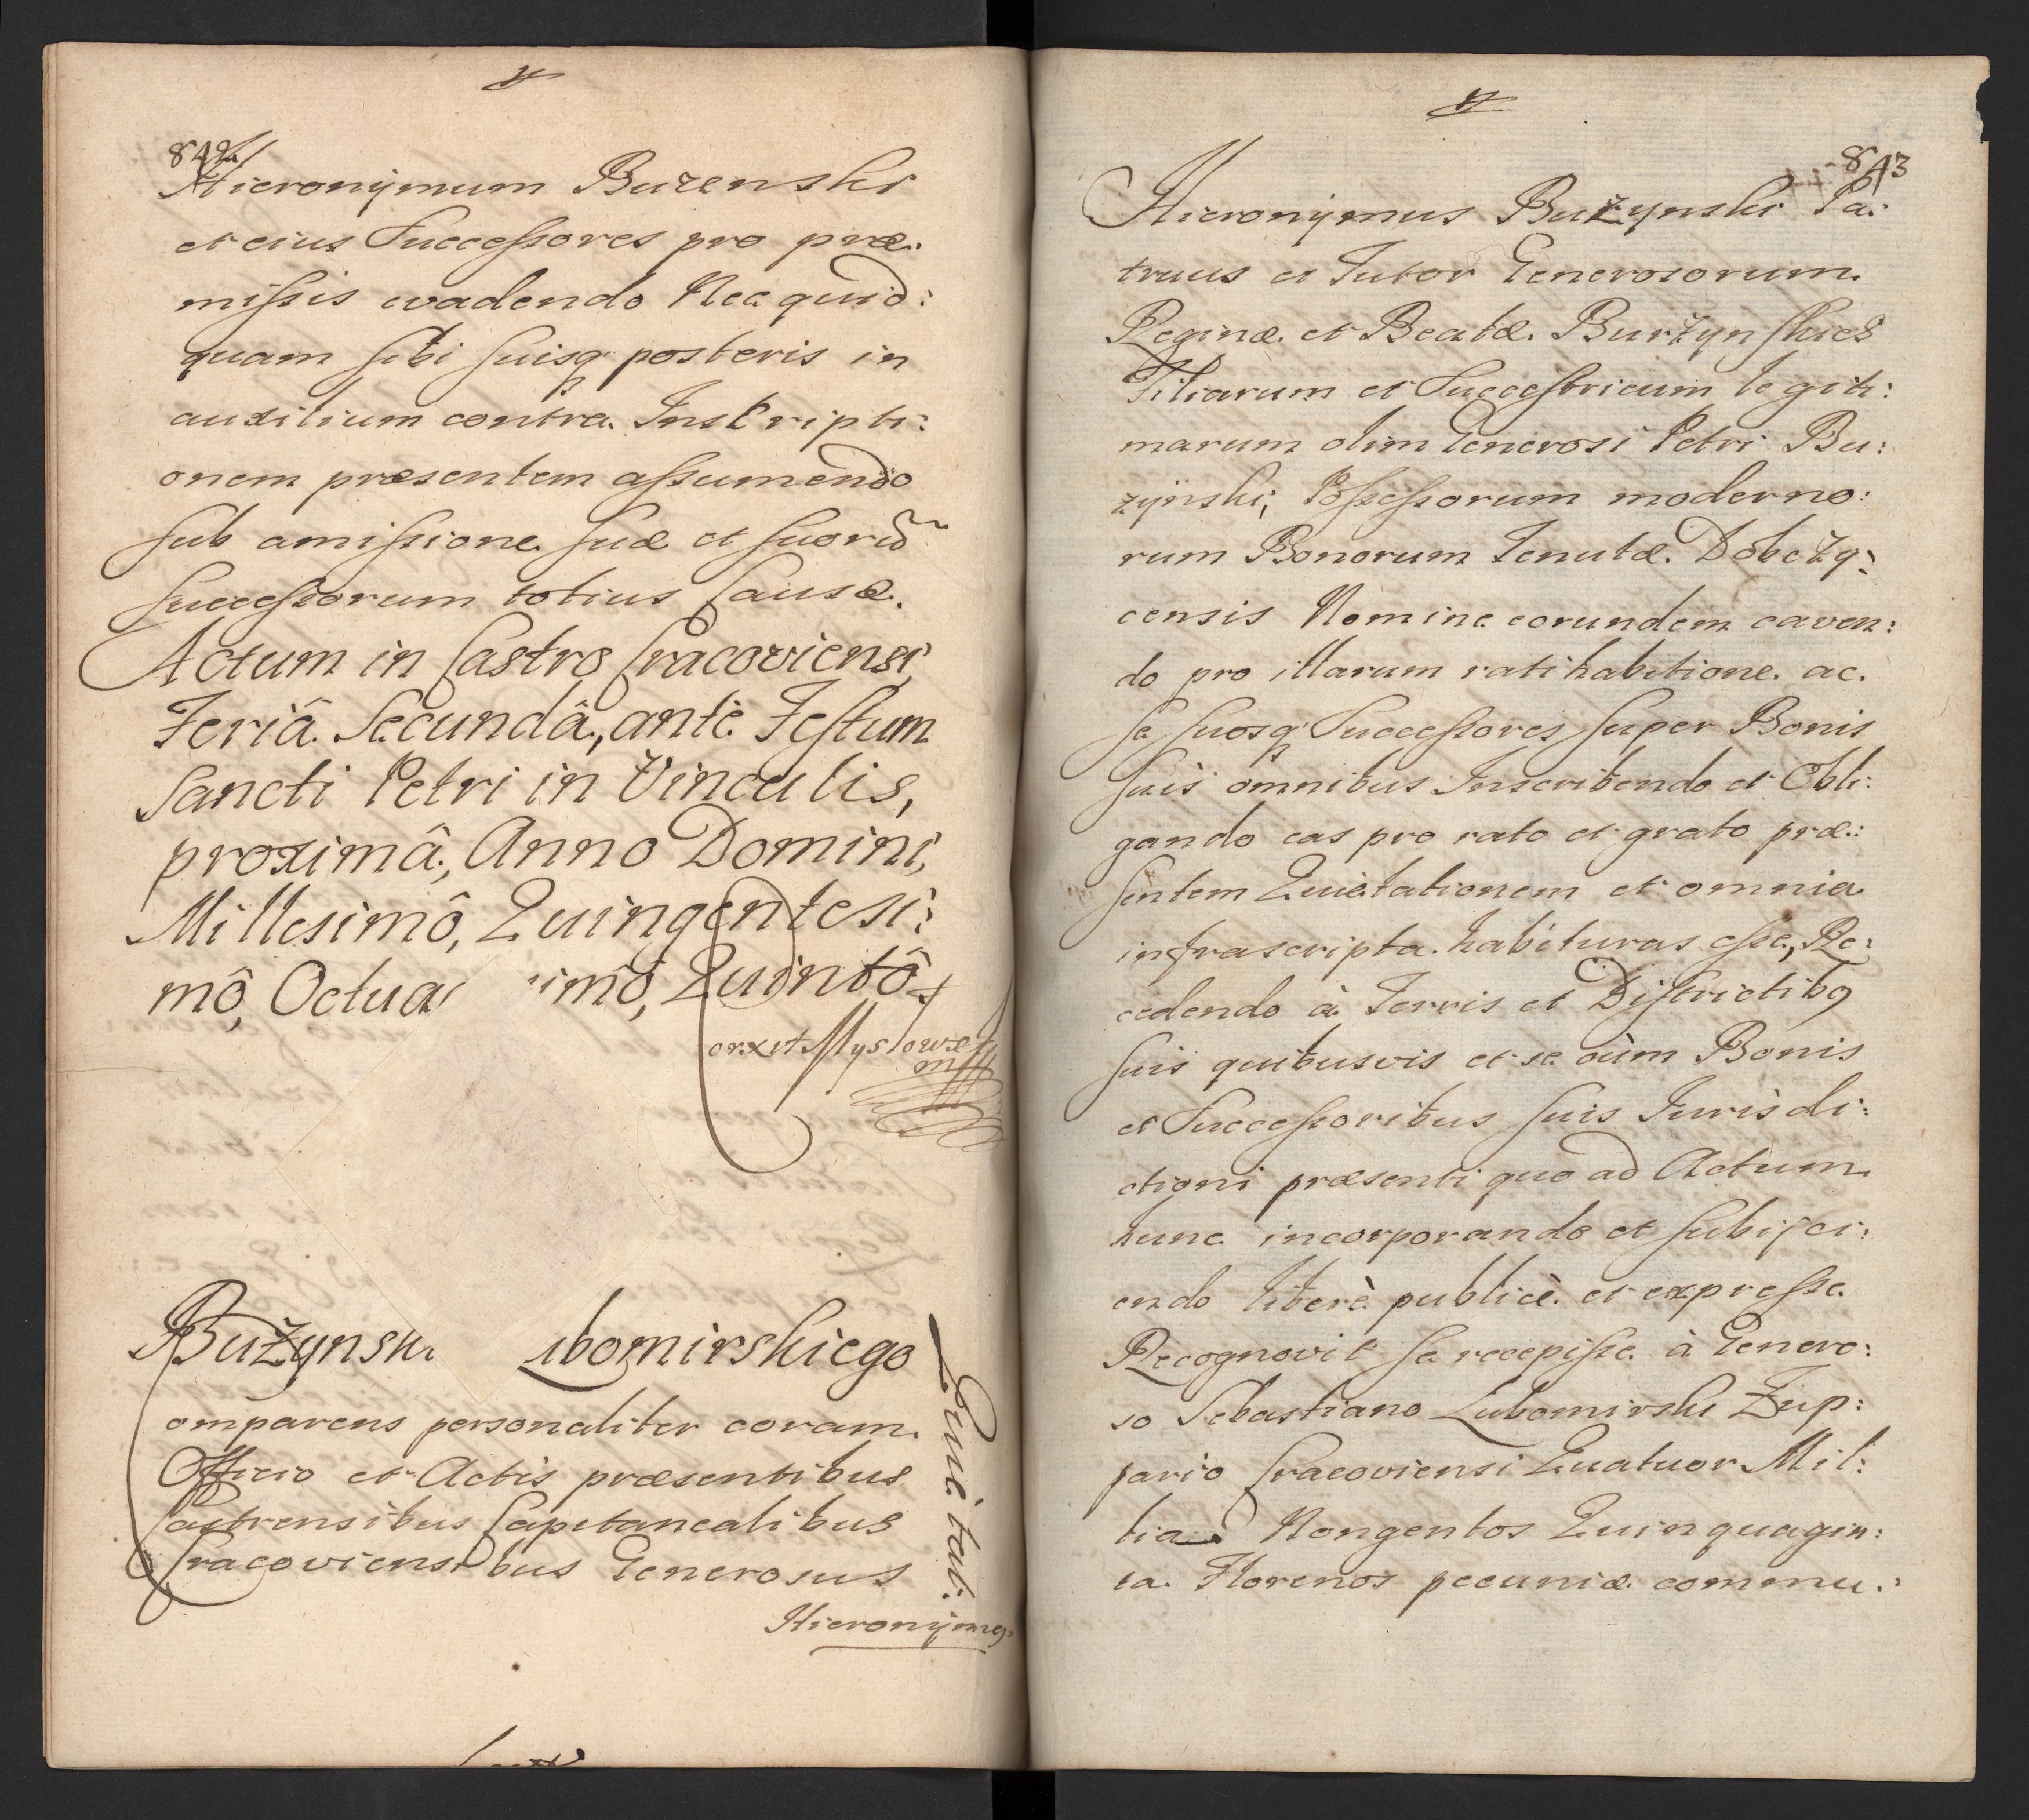 842
Hieronÿmum Buzenski
et eius Successores pro præ:
missis evadendo Nec quid:
quam sibi suisq posteris in
auxilium contra Inskripti:
onem præsentem assumendo
sub amissione suæ et suorũ
Successorum totius Causæ.
Actum in Castro Cracoviensi,
Feriâ Secundâ, ante Festum
Sancti Petri in Vinculis,
proximâ, Anno Domini,
Millesimô, Quingentesi:
mô, Octua imô, Quintô
Bużynski ubomirskiego
omparens personaliter coram
Officio et Actis præsentibus
Castrensibus Capitanealibus
Cracoviensibus Generosus
Quietat:
Hieronÿmq
843
Hieronÿmus Bużynski Pa:
truus et Tutor Generosorum
Reginæ et Beatæ Burżynskies
Filiarum et Successricum legiti:
marum olim Generosi Petri Bu:
zÿnski, Possessorum moderno:
rum Bonorum Tenutæ Dobczy:
censis Nomine eorundem caven:
do pro illarum ratihabitione ac
se suosq Successores super Bonis
suis omnibus Inscribendo et Obli:
gando eas pro rato et grato præ:
sentem Quietationem et omnia
infrascripta habituras esse, Re:
cedendo à Terris et Districtibq
suis quibusvis et se cùm Bonis
et Successoribus suis Jurisdi:
ctioni præsenti quo ad Actum
hunc incorporando et subijci:
endo liberè publicè et expresse
Recognovit se recepisse à Genero:
so Sebastiano Lubomirski Zup:
pario Cracoviensi Quatuor Mil:
lia Nongentos Quinquagin:
ta Florenos pecuniæ commu: